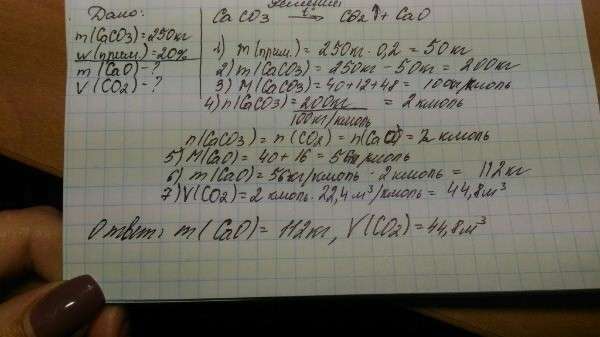 Дано:
m(CaCO3)=250кг
w(прим.)=20%
m(CaO)-?
V(CO2)-?
CaCO3 t→ CO2↑ + CaO
1) m(прим.) = 250кг · 0,2 = 50кг
2) m(CaCO3) = 250кг - 50кг = 200кг
3) M(CaCO3) = 40+12+48 = 100кг/кмоль
4) n(CaCO3) = 200кг / 100кг/кмоль = 2 кмоль
n(CaCO3) = n(CO2) = n(CaO) = 2 кмоль
5) M(CaO) = 40 + 16 = 56кг/кмоль
6) m(CaO) = 56кг/кмоль · 2 кмоль = 112кг
7) V(CO2) = 2 кмоль · 22,4 м³/кмоль = 44,8м³
Ответ: m(CaO) = 112кг, V(CO2) = 44,8м³